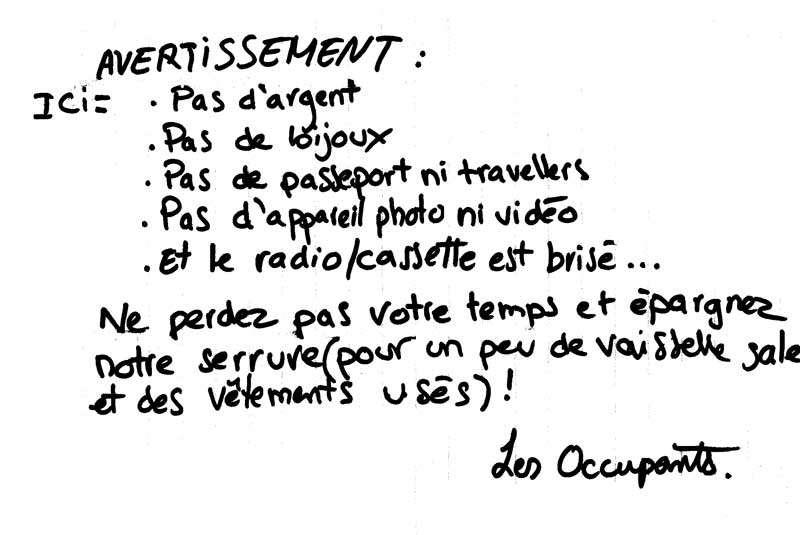 AVERTISSEMENT :
Ici = . Pas d'argent
. Pas de bijoux
. Pas de passeport ni travellers
. Pas d'appareil photo ni vidéo
. Et le radio/cassette est brisé ...
Ne perdez pas votre temps et épargnez
notre serrure (pour un peu de vaisselle sale
et des vêtements usés) !
Les Occupants.